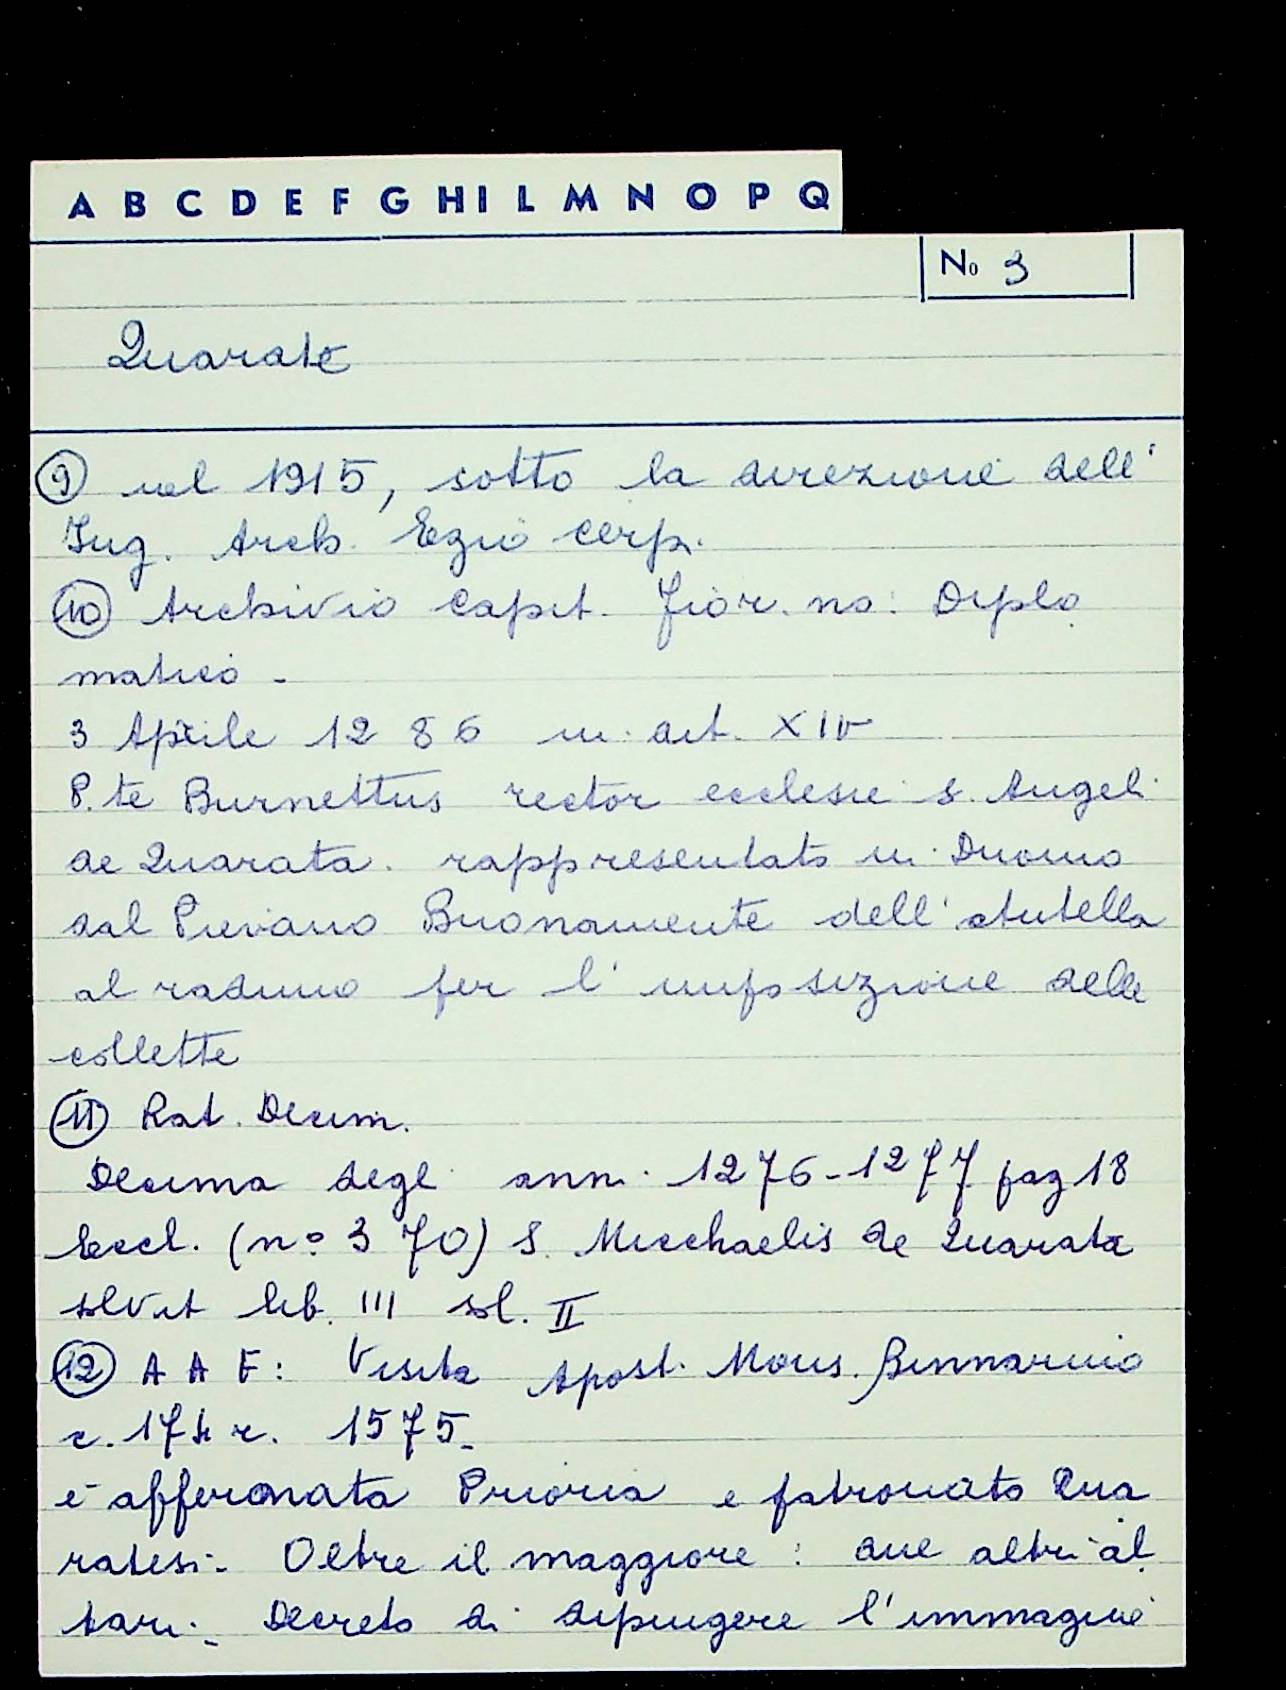 A B C D E F G H I L M N O P Q
No 3
Quarate
⑨ nel 1915, sotto la direzione dell'
Ing. Arch. Ezio Cerpi.
⑩ Archivio Capit. Fior. no: Diplo
matico -
3 Aprile 1286 in. det. XIV
P.te Burnettus rector ecclesie S. Angeli
de Quarata. rappresentato in Duomo
dal Pievano Buonamente dell'Antella
al raduno per l'imposizione delle
collette
⑪ Rat. Decim.
Decima degli anni 1276-1277 pag 18
Eccl. (n° 370) S. Micchaelis de Quarata
solvit lib. III sol. II
⑫ A A F: Visita Apost. Mons. Binnarino
c. 174 r. 1575.
è affermata Prioria e patronato Qua
ratesi. Oltre il maggiore: due altri al
tari. Decreto di dipingere l'immagine